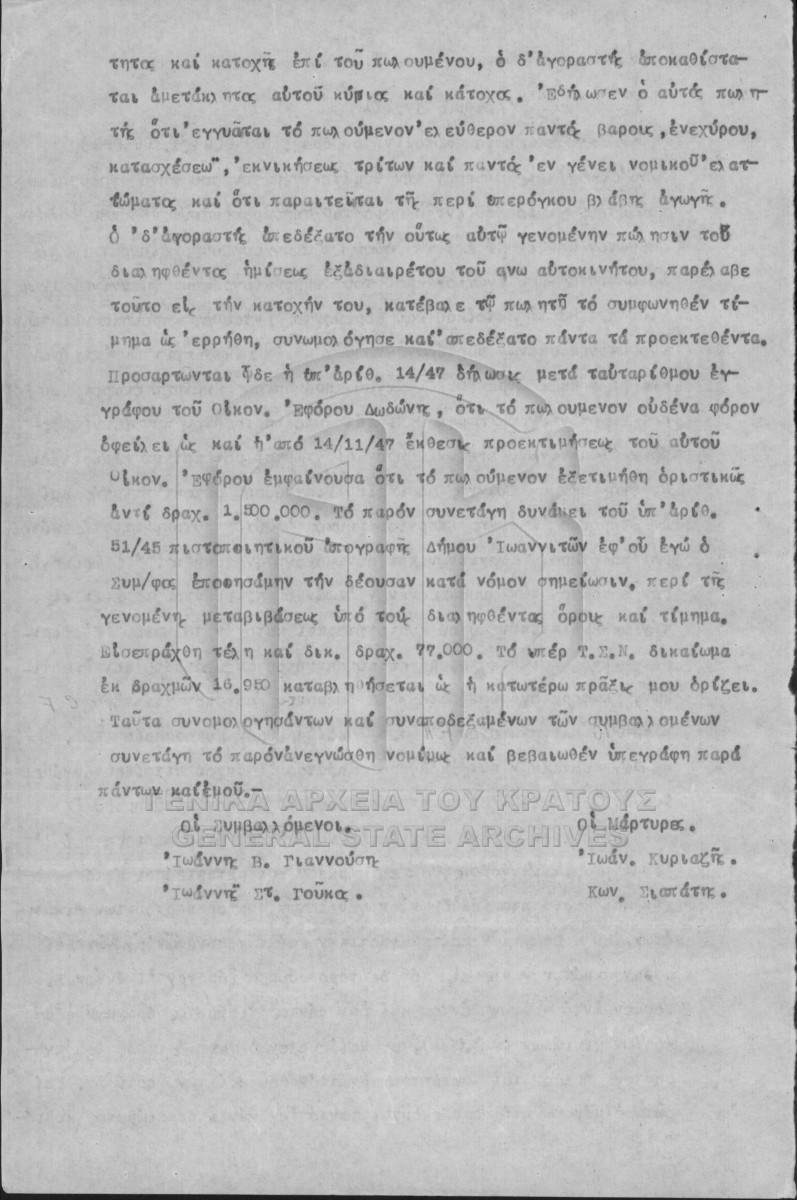 τητος καί κατοχῆς ἐπί τοῦ πωλουμένου, ὁ δ'ἀγοραστής ἀποκαθίστα-
ται ἀμετάκλητος αὐτοῦ κύριος καί κάτοχος. Ἐδήλωσεν ὁ αὐτός πωλη-
τής ὅτι 'εγγυᾶται τό πωλούμενον 'ελεύθερον παντός βαρους, ἐνεχύρου,
κατασχέσεως, 'εκνικήσεως τρίτων καί παντός 'εν γένει νομικοῦ 'ελατ-
τώματος καί ὅτι παραιτεῖται τῆς περί ὑπερόγκου βλάβης ἀγωγῆς.
Ὁ 'δ'ἀγοραστής ἀπεδέξατο τήν οὕτως αὐτῷ γενομένην πώλησιν τοῦ
διαληφθέντος ἡμίσεως ἐξάδιαιρέτου τοῦ ανω αὐτοκινήτου, παρέλαβε
τοῦτο εἰς τήν κατοχήν του, κατέβαλε τῷ πωλητῇ τό συμφωνηθέν τί-
μημα ὡς 'ερρήθη, συνωμολόγησε καί 'απεδέξατο πάντα τά προεκτεθέντα.
Προσαρτωνται ὧδε ἡ ὑπ'ἀρίθ. 14/47 δήλωσις μετά ταὐταρίθμου ἐγ-
γράφου τοῦ Οἰκον. Ἐφόρου Δωδώνης, ὅτι τό πωλουμενον οὐδένα φόρον
ὀφείλει ὡς καί ἡ 'από 14/11/47 ἔκθεσις προεκτιμήσεως τοῦ αὐτοῦ
Οἰκον. Ἐφόρου ἐμφαίνουσα ὅτι τό πωλούμενον ἐξετιμήθη ὁριστικῶς
ἀντί δραχ. 1.500.000. Τό παρόν συνετάγη δυνάμει τοῦ ὑπ'ἀρίθ.
51/45 πιστοποιητικοῦ ἀπογραφῆς Δήμου Ἰωαννιτῶν ἐφ'οὗ ἐγώ ὁ
Συμ/φος ἐποιησάμην τήν δέουσαν κατά νόμον σημείωσιν, περί τῆς
γενομένης μεταβιβάσεως ὑπό τούς διαληφθέντας ὅρους καί τίμημα.
Εἰσεπράχθη τέλη καί δικ. δραχ. 77.000. Τό ὑπέρ Τ.Σ.Ν. δικαίωμα
ἐκ δραχμῶν 16.950 καταβληθήσεται ὡς ἡ κατωτέρω πρᾶξις μου ὁρίζει.
Ταῦτα συνομολογησάντων καί συναποδεξαμένων τῶν συμβαλλομένων
συνετάγη τό παρόν ἀνεγνώσθη νομίμως καί βεβαιωθέν ὑπεγράφη παρά
πάντων καί ἐμοῦ.-
ΓΕΝΙΚΑ ΑΡΧΕΙΑ ΤΟΥ ΚΡΑΤΟΥΣ
Οἱ Συμβαλλόμενοι. Οἱ Μάρτυρες.
GENERAL STATE ARCHIVES
Ἰωάννης Β. Γιαννούσης Ἰωάν. Κυριαζῆς.
Ἰωάννης Στ. Γούκας. Κων. Σιαπάτης.